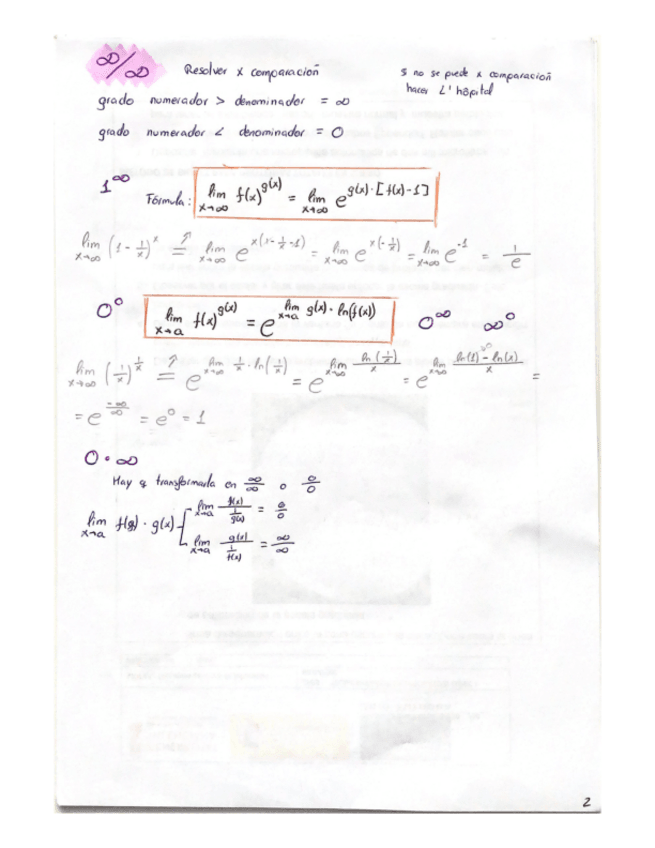 ∞/∞ Resolver x comparación
s no se puede x comparación
hacer L'hôpital
grado numerador > denominador = ∞
grado numerador < denominador = 0
1^∞ Fórmula: lim x→∞ f(x)^g(x) = lim x→∞ e^(g(x)·[f(x)-1])
lim x→∞ (1 - 1/x)^x =↗ lim x→∞ e^(x(1-1/x-1)) = lim x→∞ e^(x(-1/x)) = lim x→∞ e^-1 = 1/e
0^0 lim x→a f(x)^g(x) = e^(lim x→a g(x)·ln(f(x))) 0^∞ ∞^0
lim x→∞ (1/x)^(1/x) =↗ e^(lim x→∞ 1/x · ln(1/x)) = e^(lim x→∞ ln(1/x)/x) = e^(lim x→∞ (ln(1) - ln(x))/x) =
= e^(-∞/∞) = e^0 = 1
0·∞
Hay q transformarla en ∞/∞ o 0/0
lim x→a f(g)·g(x) lim x→a f(x)/(1/g(x)) = 0/0
lim x→a g(x)/(1/f(x)) = ∞/∞
2